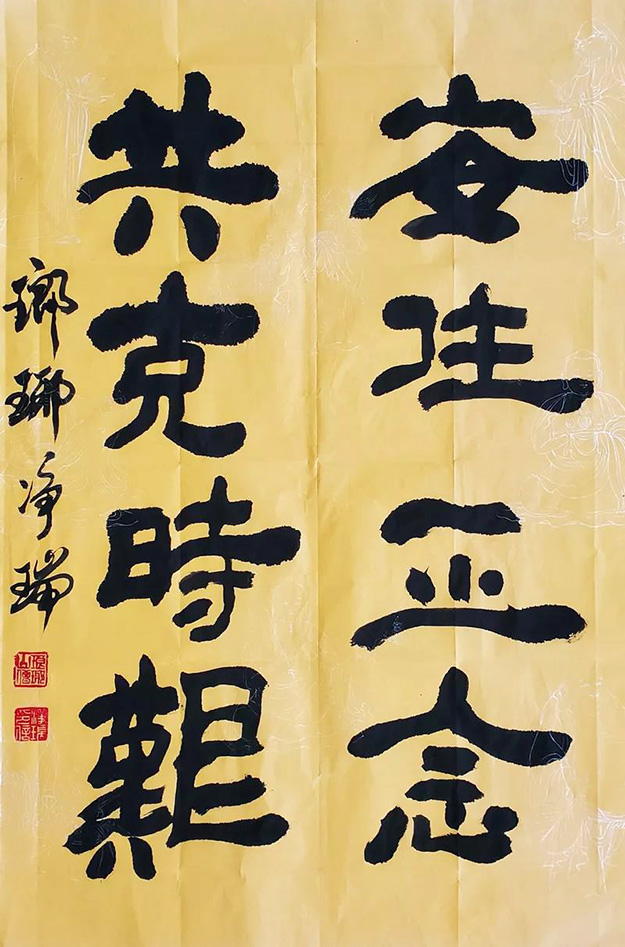 安住正念
共克時艱
瑯琊净瑞